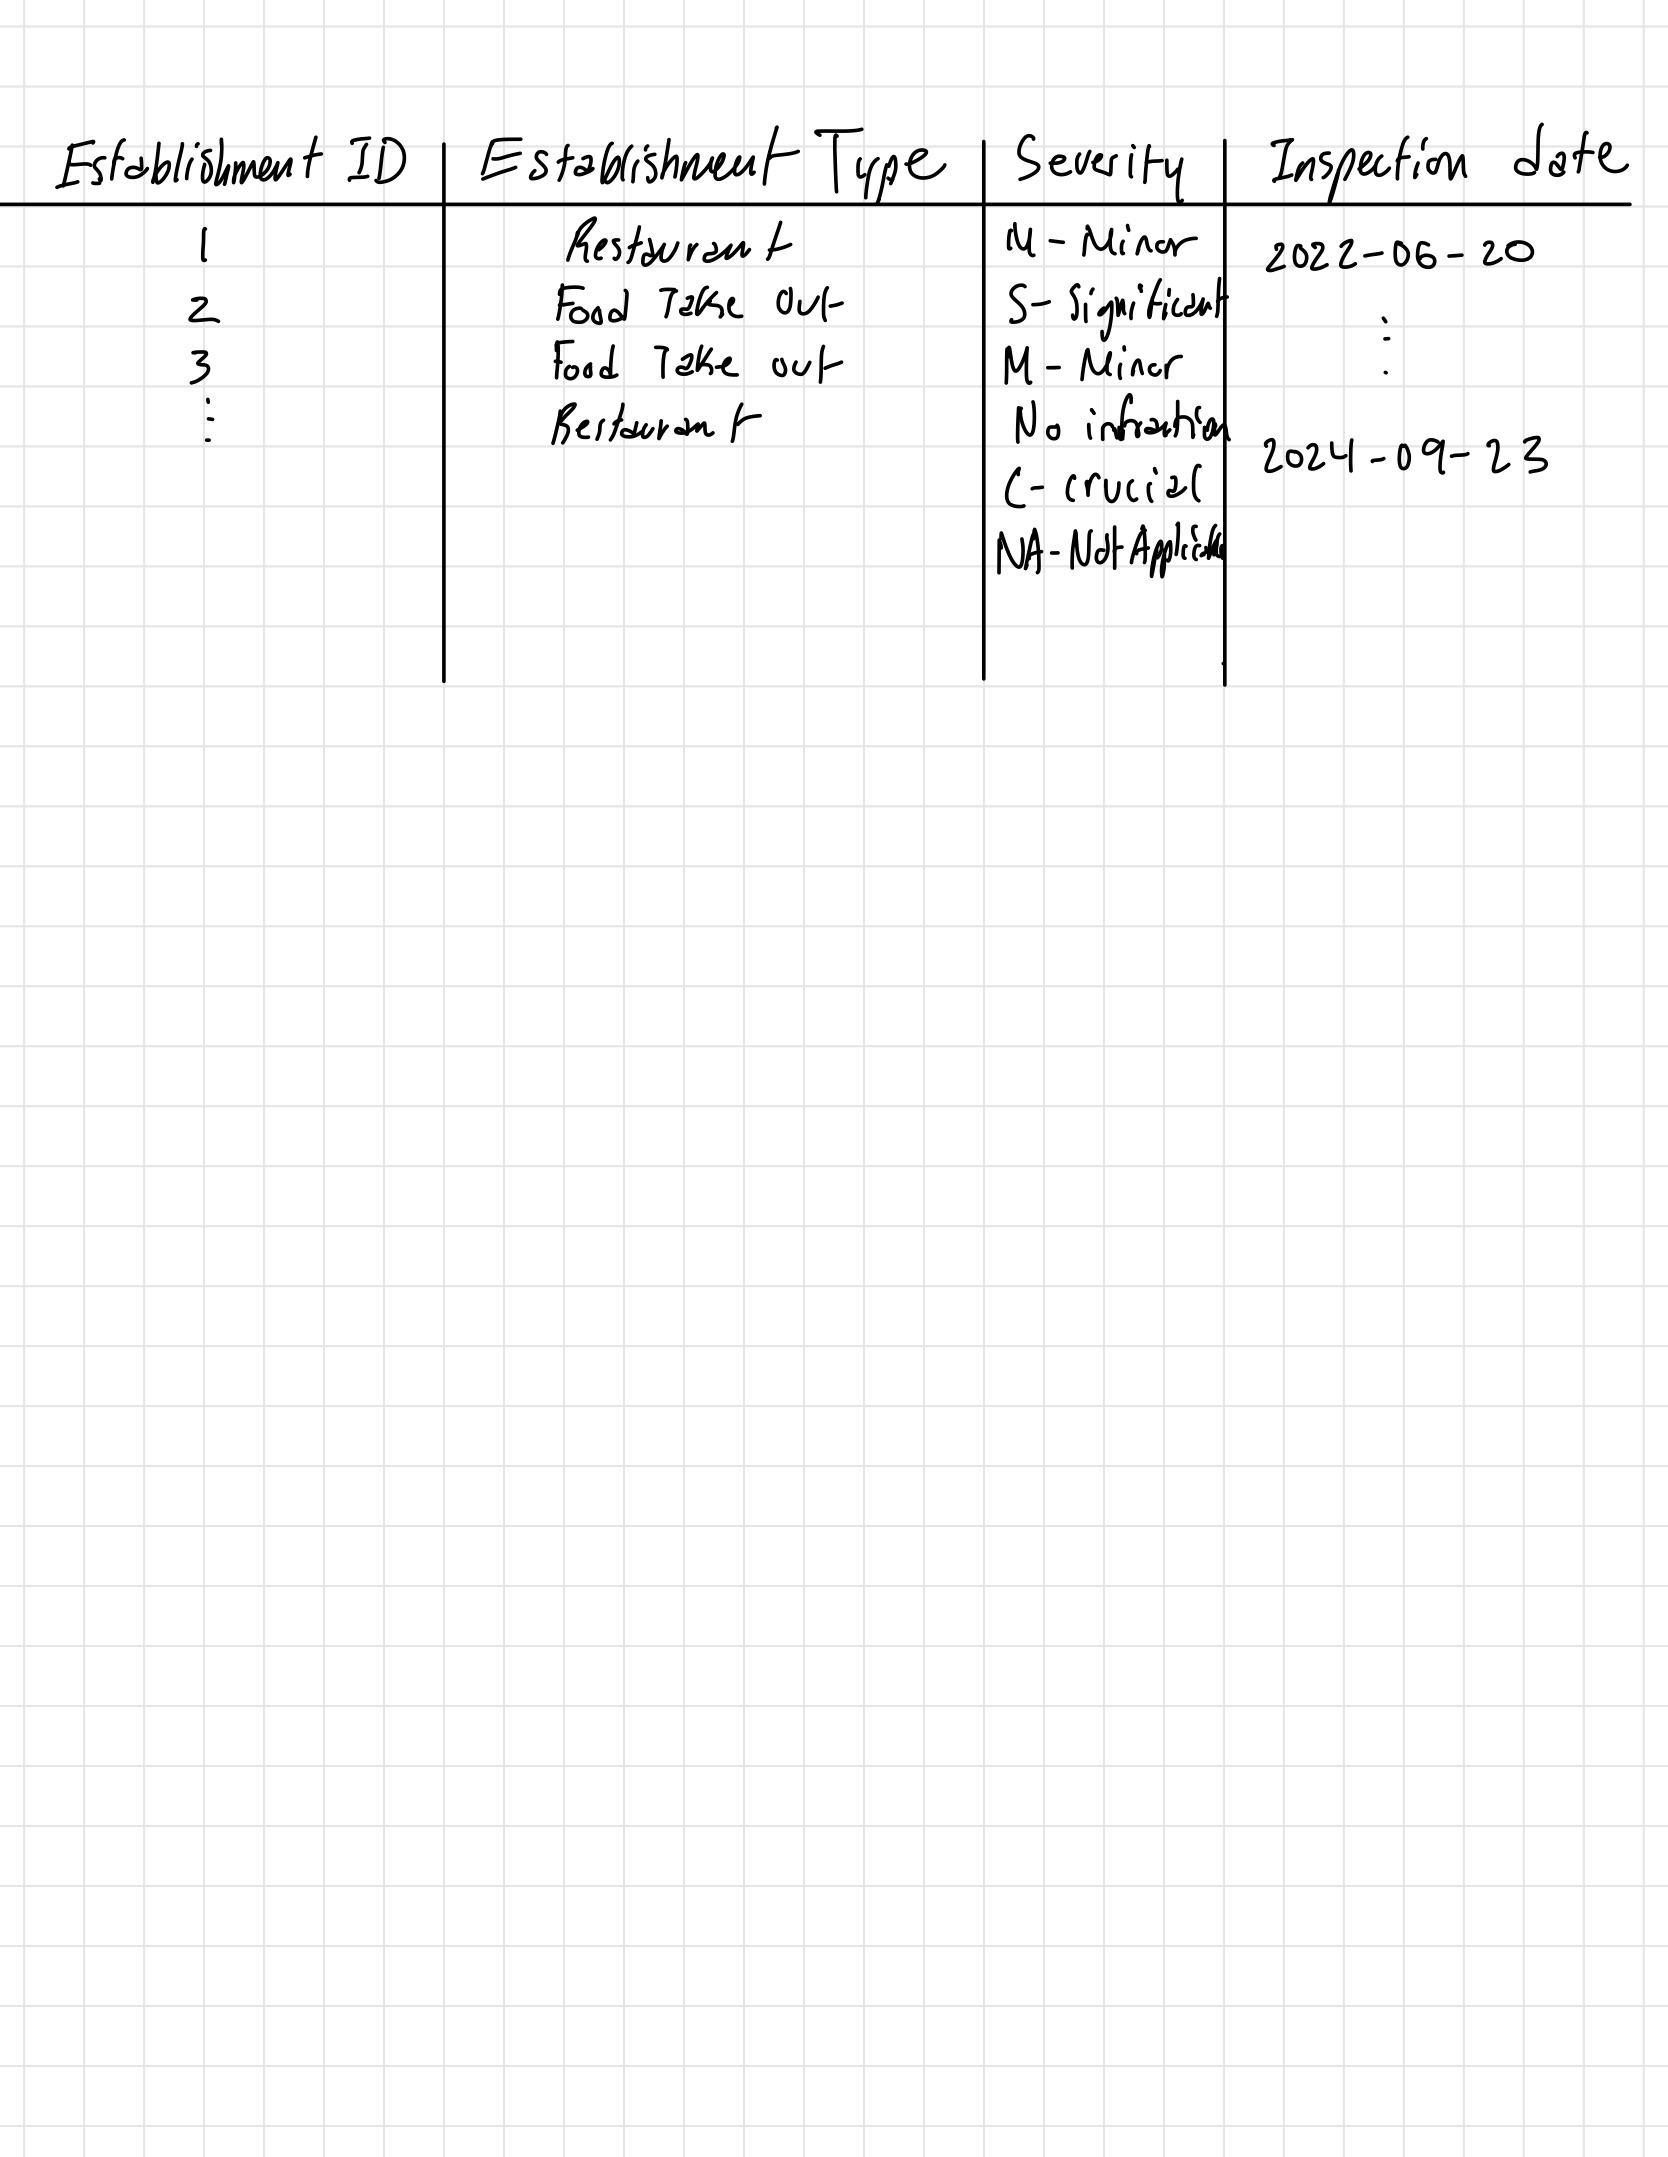 Establishment ID Establishment Type Severity Inspection date
1 Restaurant M - Minor 2022-06-20
2 Food Take out S- Significant
3 Food Take out M - Minor
Restaurant No infraction
C- crucial 2024-09-23
NA-Not